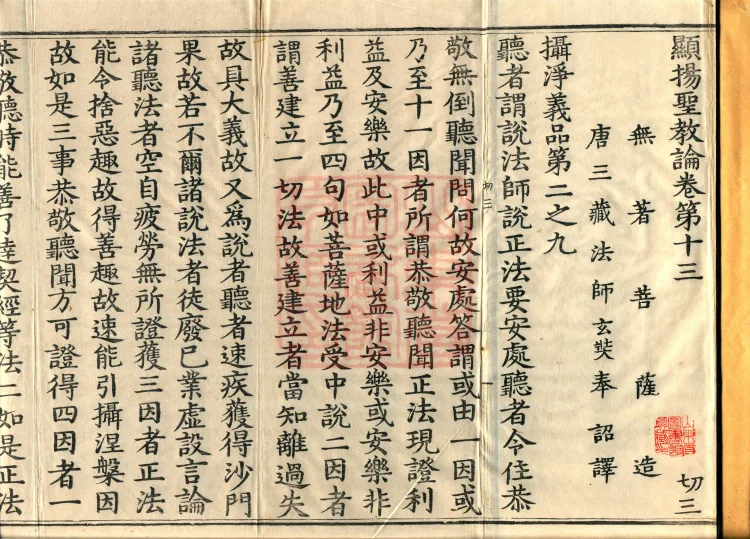 顯揚聖教論卷第十三
切三
無著菩薩造
唐三藏法師玄奘奉詔譯
攝淨義品第二之九
聽者謂說法師說正法要安處聽者令住恭
切三
敬無倒聽聞問何故安處答謂或由一因或
乃至十一因者所謂恭敬聽聞正法現證利
益及安樂故此中或利益非安樂或安樂非
利益乃至四句如菩薩地法受中說二因者
謂善建立一切法故善建立者當知離過失
故具大義故又爲說者聽者速疾獲得沙門
果故若不爾諸說法者徒廢已業虛設言論
諸聽法者空自疲勞無所證獲三因者正法
能令捨惡趣故得善趣故速能引攝涅槃因
故如是三事恭敬聽聞方可證得四因者一
恭敬聽時能善了達契經等法二如是正法